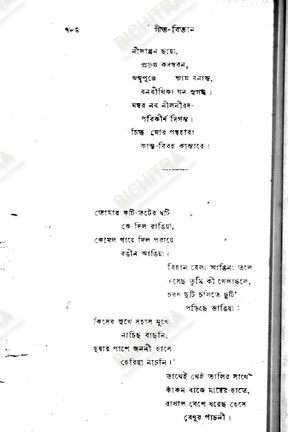 ৭৮২
গীত-বিতান
নীলাঞ্জন ছায়া,
প্রফুল্ল কদম্ববন,
জম্বুপুঞ্জে শ্যাম বনান্ত,
বনবীথিকা ঘন সুগন্ধ।
মন্থর নব নীলনীরদ-
পরিকীর্ণ দিগন্ত।
চিত্ত মোর পন্থহারা
কান্ত-বিরহ কান্তারে।
তোমার কটি-তটের ধটি
কে দিল রাঙিয়া,
কোমল গায়ে দিল পরায়ে
রঙীন আঙিয়া।
বিহান বেলা আঙিনা তলে
এসেছ তুমি কী খেলাছলে,
চরণ দুটি চলিতে ছুটি
পড়িছে ভাঙিয়া।
কিসের সুখে সহাস মুখে
নাচিছ বাছনি,
দুয়ার পাশে জননী হাসে
হেরিয়া নাচনি।
তাথেই থেই তালির সাথে
কাঁকন বাজে মায়ের হাতে,
রাখাল বেশে ধরেছ হেসে
বেণুর পাঁচনী।
BICHITRA